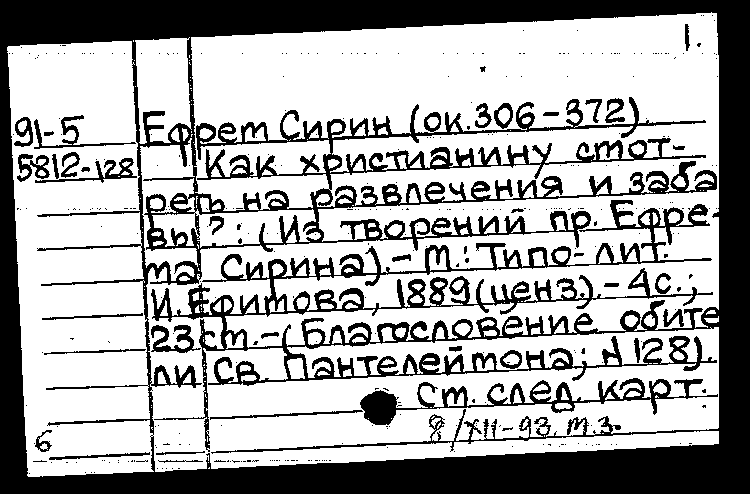 1.
91-5 Ефрем Сирин (ок.306-372).
5812-128 Как христианину смот-
реть на развлечения и заба
вы?: (Из творений пр. Ефре-
ма Сирина).- М.: Типо-лит.
И. Ефимова, 1889(ценз.).-4с.;
23см.-(Благословение обите
ли Св. Пантелеймона; N128).
См. след. карт.
6 8/XII-93. м.з.